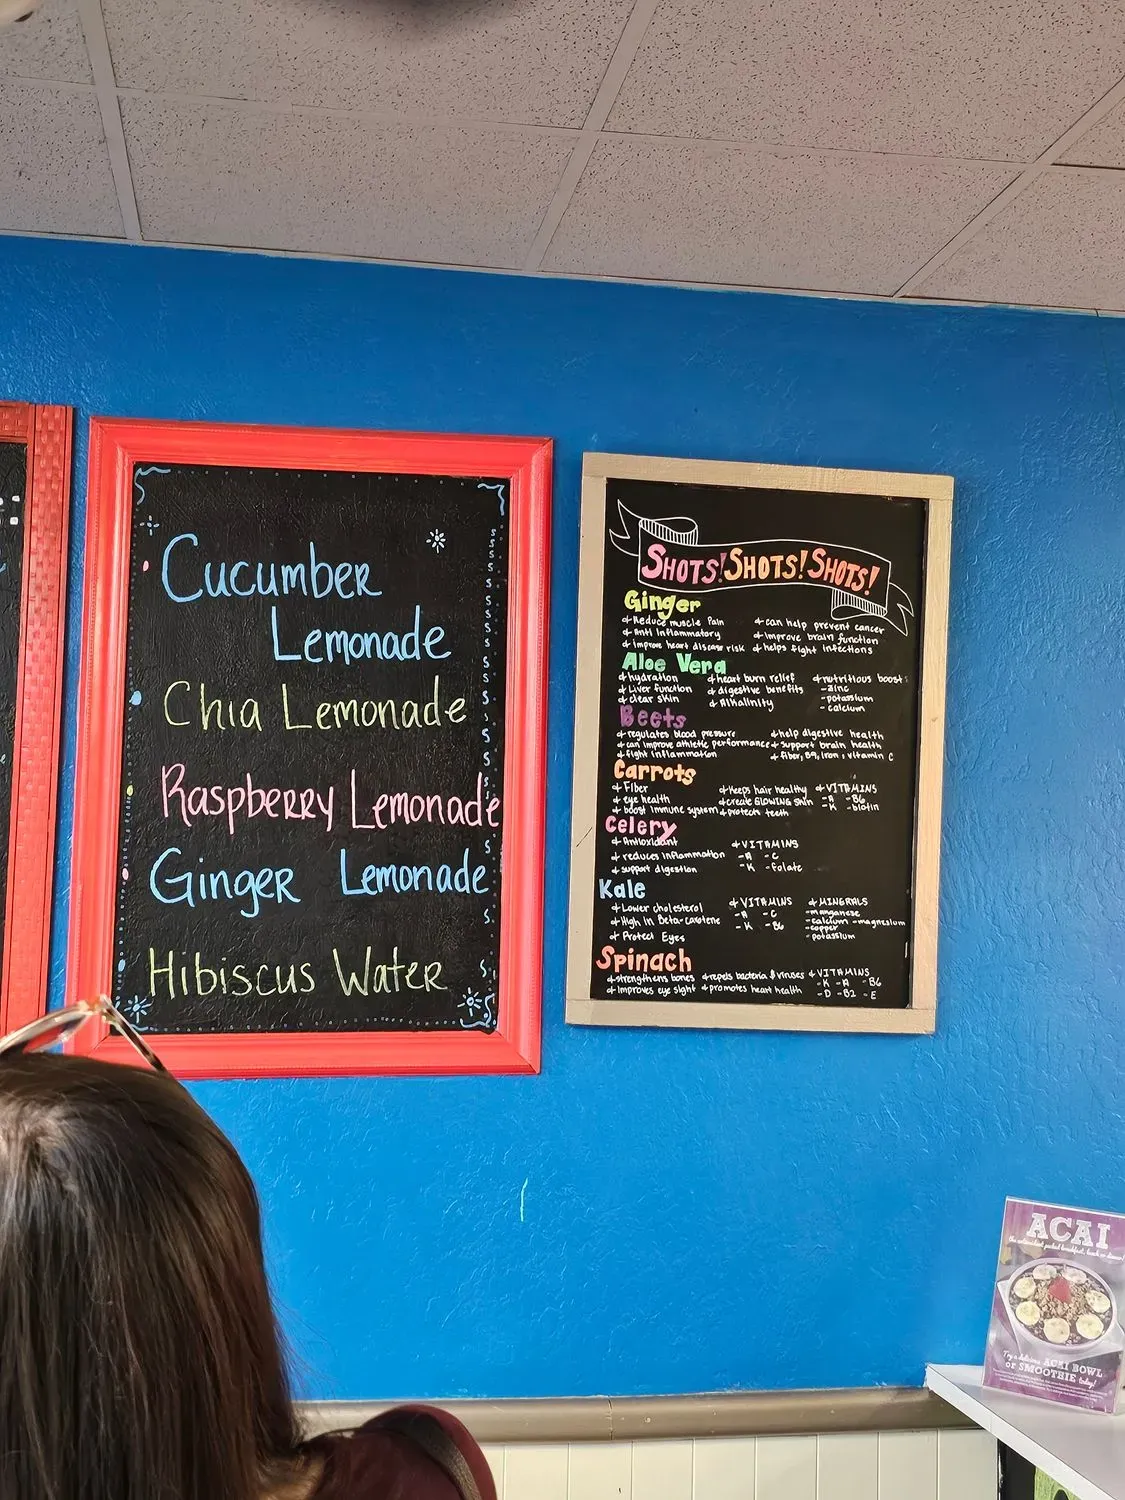 Cucumber
Lemonade
Chia Lemonade
Raspberry Lemonade
Ginger Lemonade
Hibiscus Water
SHOTS! SHOTS! SHOTS!
Ginger
Reduce muscle Pain
can help prevent cancer
Anti Inflammatory
improve brain function
improve heart disease risk
helps fight infections
Aloe Vera
hydration
heart burn relief
nutritious boost
Liver function
digestive benefits
-zinc
clear skin
Alkalinity
-potassium
-calcium
Beets
regulates blood pressure
help digestive health
can improve athletic performance
support brain health
fight inflammation
fiber, B9, iron, vitamin C
Carrots
Fiber
Keeps hair healthy
VITAMINS
eye health
create GLOWING skin
-A -B6
boost immune system
protect teeth
-K -biotin
Celery
Antioxidant
VITAMINS
reduces inflammation
-A -C
support digestion
-K -folate
Kale
Lower cholesterol
VITAMINS
MINERALS
High in Beta-carotene
-A -C
-manganese
-calcium -magnesium
Protect Eyes
-K -B6
-copper
-potassium
Spinach
strengthens bones
repels bacteria & viruses
VITAMINS
improves eye sight
promotes heart health
-K -A -B6
-D -B2 -E
ACAI
Try a delicious ACAI BOWL
or SMOOTHIE today!